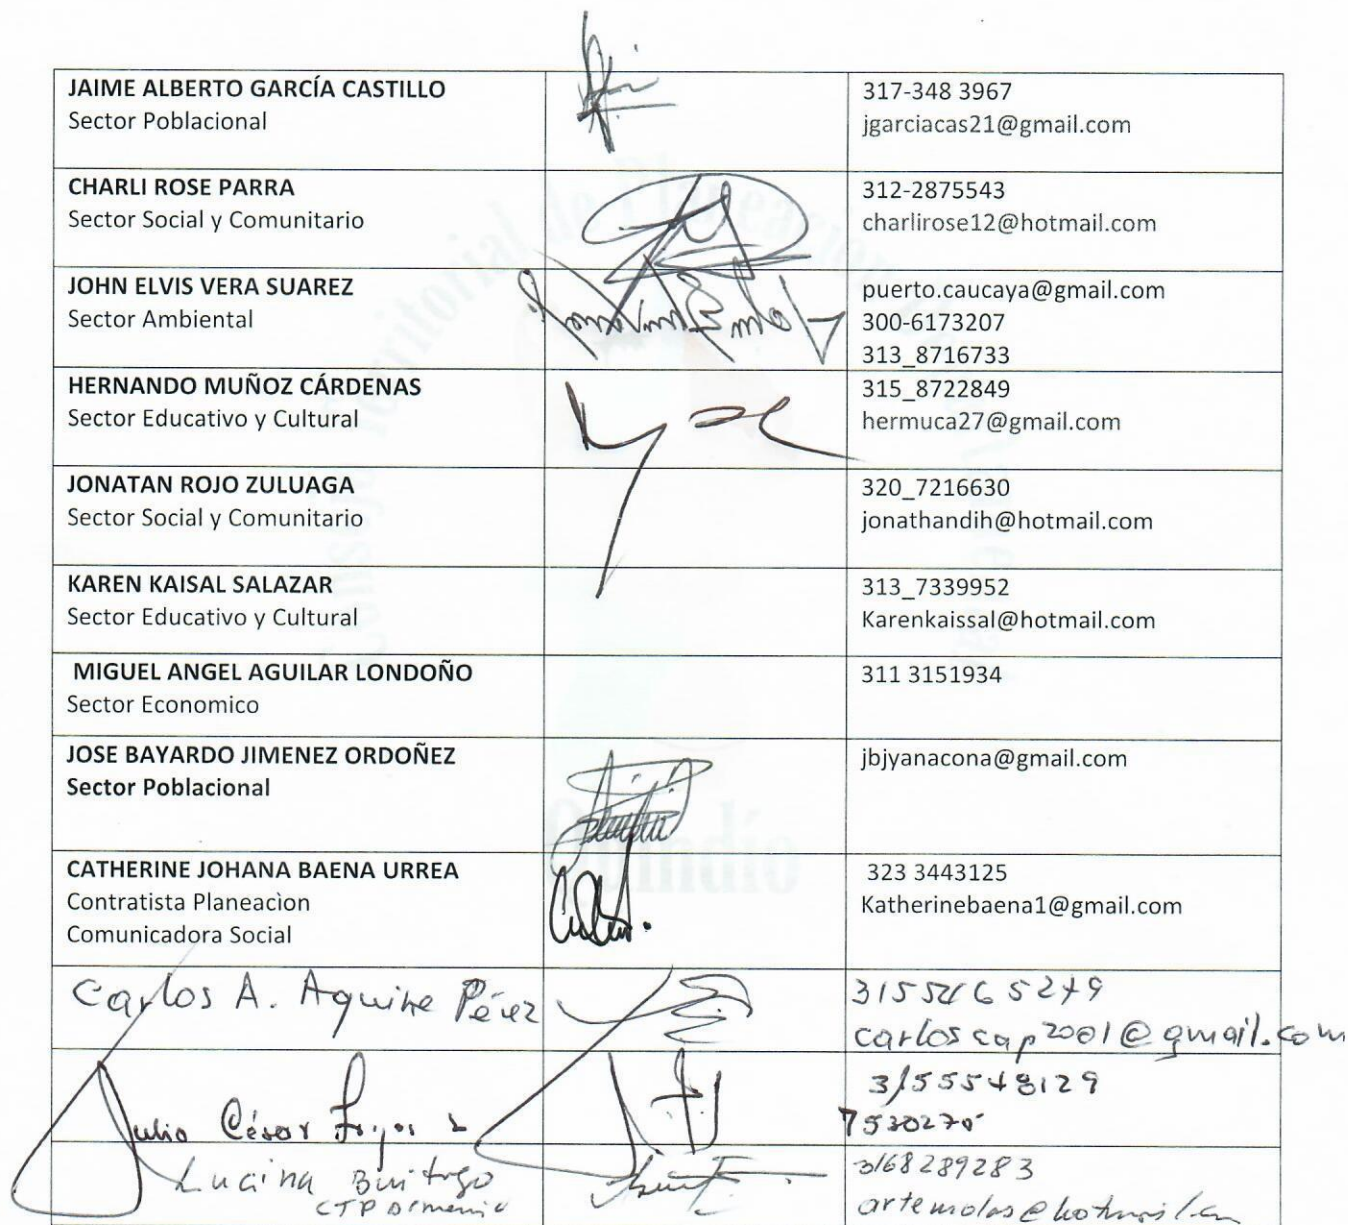 JAIME ALBERTO GARCÍA CASTILLO
Sector Poblacional
317-348 3967
jgarciacas21@gmail.com
CHARLI ROSE PARRA
Sector Social y Comunitario
312-2875543
charlirose12@hotmail.com
JOHN ELVIS VERA SUAREZ
Sector Ambiental
puerto.caucaya@gmail.com
300-6173207
313_8716733
HERNANDO MUÑOZ CÁRDENAS
Sector Educativo y Cultural
315_8722849
hermuca27@gmail.com
JONATAN ROJO ZULUAGA
Sector Social y Comunitario
320_7216630
jonathandih@hotmail.com
KAREN KAISAL SALAZAR
Sector Educativo y Cultural
313_7339952
Karenkaissal@hotmail.com
MIGUEL ANGEL AGUILAR LONDOÑO
Sector Economico
311 3151934
JOSE BAYARDO JIMENEZ ORDOÑEZ
Sector Poblacional
jbjyanacona@gmail.com
CATHERINE JOHANA BAENA URREA
Contratista Planeaciòn
Comunicadora Social
323 3443125
Katherinebaena1@gmail.com
Carlos A. Aguirre Pérez
carloscap2001@gmail.com
Julio César
3155548129
7530270
Lucina Buitrago
CTP Armenia
3168289283
Consejo Territorial de Planeación
Quindío